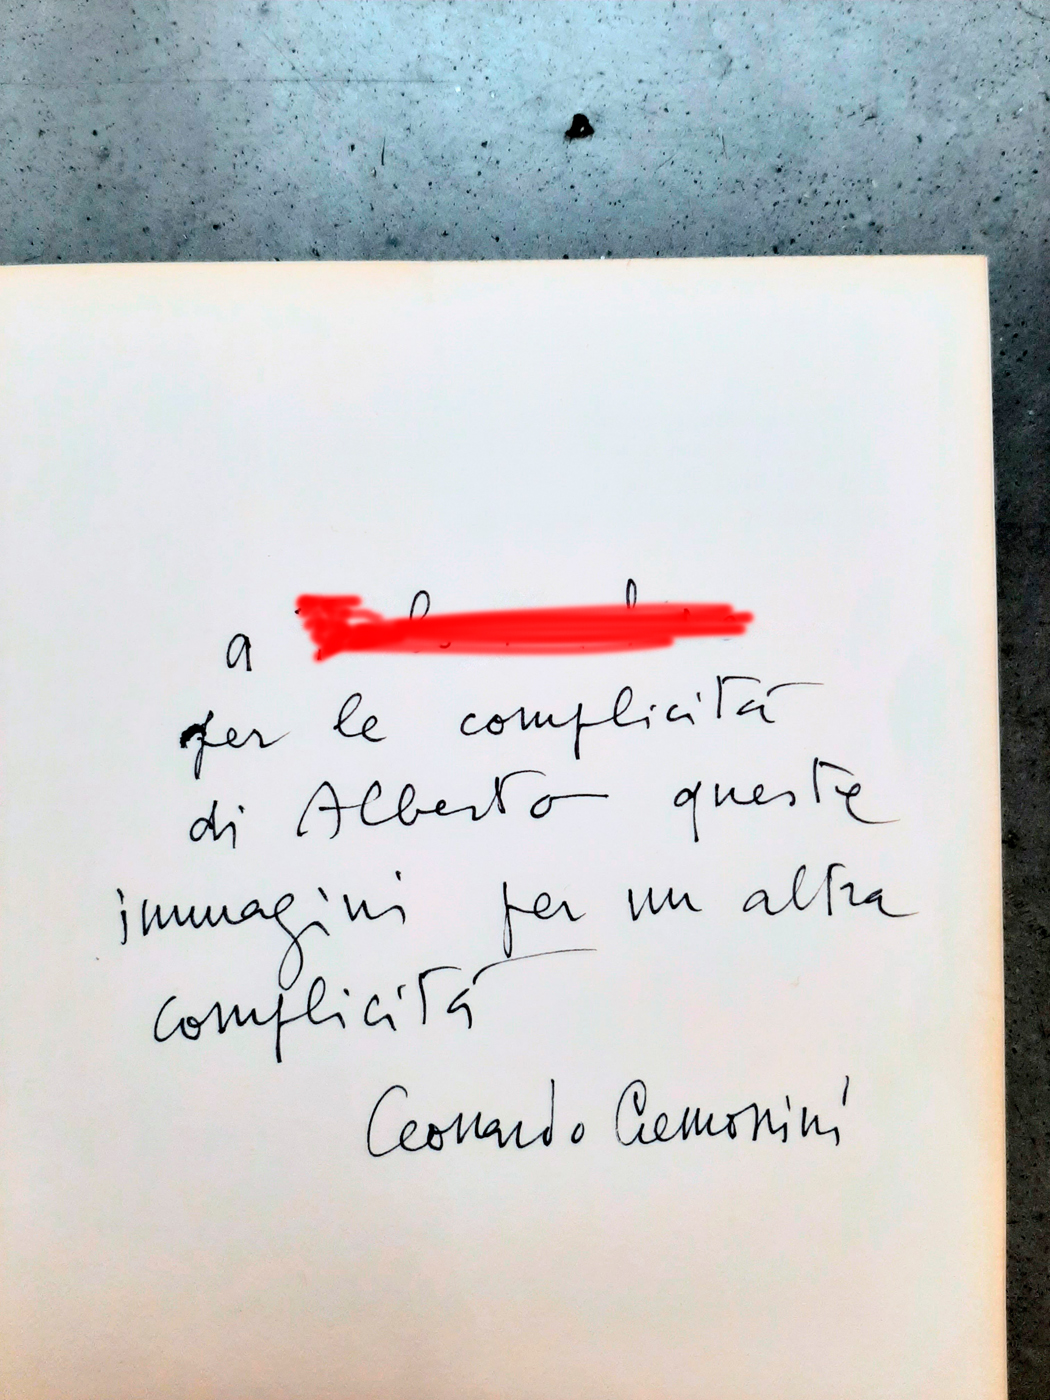 a
per le complicità
di Alberto queste
immagini per un altra
complicità
Leonardo Cremonini